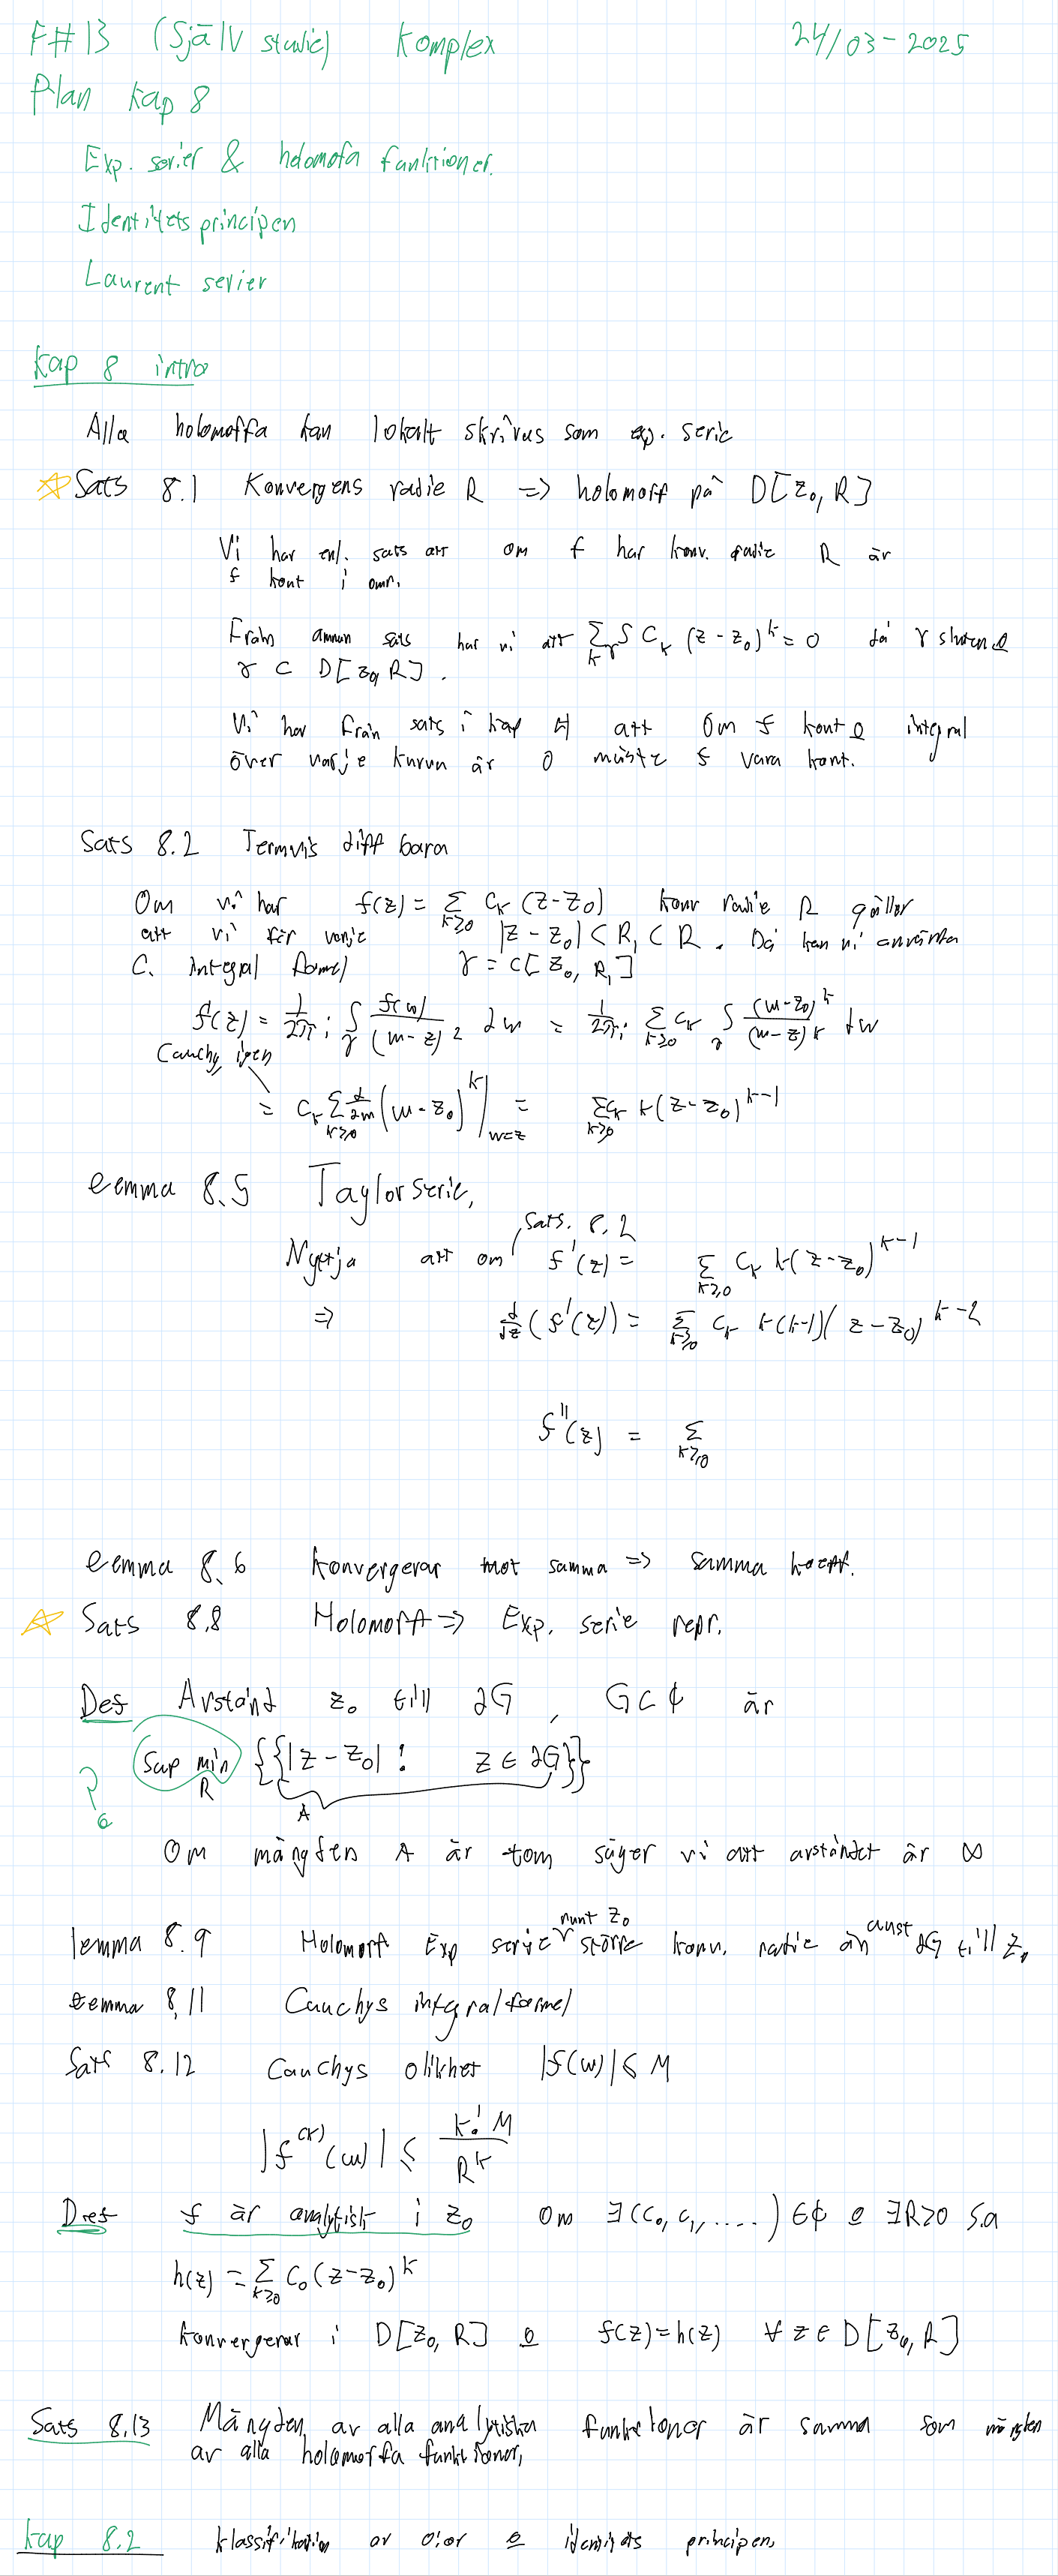 F#13 (Själv studie) Komplex 24/03-2025
Plan kap 8
Exp. serier & holomofa funktioner.
Identitets principen
Laurent serier
Kap 8 intro
Alla holomoffa kan lokalt skrivas som exp. serie
Sats 8.1 Konvergens radie R => holomorf på D[z₀, R]
Vi har enl. sats att om f har konv. radie R är
f kont i omr.
Från annan sats har vi att Σ_k ∫_γ C_k (z-z₀)^k = 0 då γ sluten &
γ ⊂ D[z₀, R].
Vi har från sats i kap att Om f kont & integral
över varje kurva är 0 måste f vara kont.
Sats 8.2 Termvis diff bara
Om vi har f(z) = Σ_{k≥0} C_k (z-z₀) konv radie R gäller
att vi för varje |z-z₀| < R₁ < R. Då kan vi använda
C. integral formel γ = C[z₀, R₁]
f'(z) = 1/2πi ∫_γ f(w)/(w-z)² dw = 1/2πi Σ_{k≥0} C_k ∫_γ (w-z₀)^k/(w-z)^k dw
Cauchy igen
= C_k Σ_{k≥0} d/dw (w-z₀)^k |_{w=z} = Σ_{k≥0} C_k k(z-z₀)^{k-1}
lemma 8.5 Taylor serie,
Sats. 8.2
Nyttja att om f'(z) = Σ_{k≥0} C_k k(z-z₀)^{k-1}
=> d/dz (f'(z)) = Σ_{k≥0} C_k k(k-1)(z-z₀)^{k-2}
f''(z) = Σ_{k≥0}
lemma 8.6 Konvergerar mot samma => samma koeff.
Sats 8.8 Holomorf => Exp. serie repr.
Def Avstånd z₀ till ∂G, G⊂ℂ är
Sup min_R {{|z-z₀| : z ∈ ∂G}}
A
Om mängden A är tom säger vi att avståndet är ∞
lemma 8.9 Holomorf Exp serie runt z₀ större konv. radie än avst ∂G till z₀
lemma 8.11 Cauchys integralformel
Sats 8.12 Cauchys olikhet |f(w)| ≤ M
|f^{(k)}(w)| ≤ k! M / R^k
Def f är analytisk i z₀ Om ∃(C₀, C₁, ....) ∈ℂ & ∃R>0 s.a
h(z) = Σ_{k≥0} C₀(z-z₀)^k
Konvergerar i D[z₀, R] & f(z)=h(z) ∀ z∈D[z₀, R]
Sats 8.13 Mängden av alla analytiska funktioner är samma som mängden
av alla holomorfa funktioner,
Kap 8.2 klassifikation av & identitets principen,